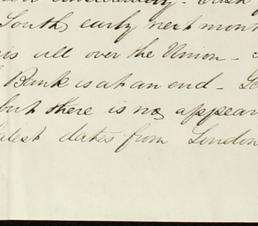 South, early next mon
is all over the Union -
Bank is at an end -
but there is no appear
atest dates from London